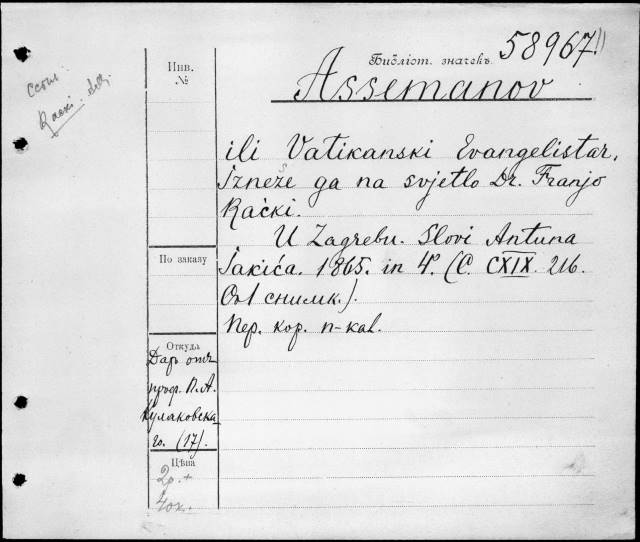 Библіот. значекъ 58967
Инв.
№
Assemanov
ili Vatikanski Evangelistar.
Izneše ga na svjetlo Dr. Franjo
Rački.
U Zagrebu. Slovi Antuna
Jakića. 1865. in 4°. (C. CXIX. 216.
Съ 1 снимк.).
Пер. кор. п-кал.
По заказу
Откуда
Даръ отъ
проф. П. А.
Кулаковска-
го. (17).
Цѣна
2р. +
40к.
Rački.